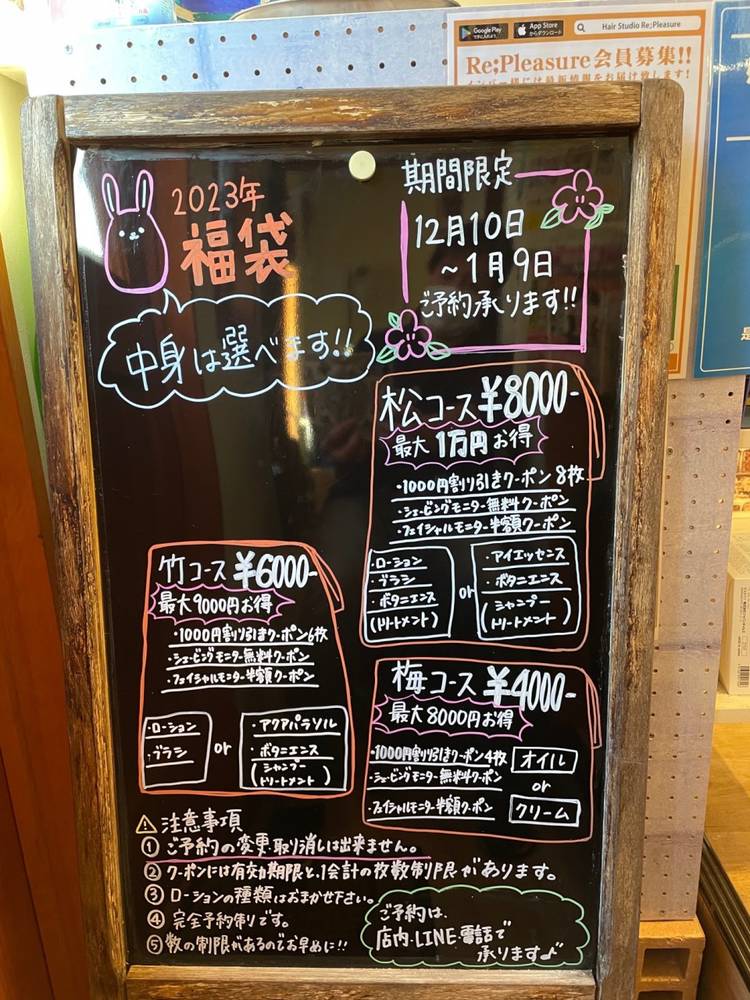 Google Play
で手に入れよう
App Store
からダウンロード
Hair Studio Re;Pleasure
Re;Pleasure会員募集!!
メンバー様には最新情報をお届け致します!
2023年
福袋
中身は選べます!!
期間限定
12月10日
~1月9日
ご予約承ります!!
松コース ¥8000-
最大1万円お得
・1000円割り引きクーポン8枚
・シェービングモニター無料クーポン
・フェイシャルモニター半額クーポン
・ローション
・ブラシ
・ボタニエンス
(トリートメント)
or
・アイエッセンス
・ボタニエンス
(シャンプー
トリートメント)
竹コース ¥6000-
最大9000円お得
・1000円割り引きクーポン6枚
・シェービングモニター無料クーポン
・フェイシャルモニター半額クーポン
・ローション
・ブラシ
or
・アクアパラソル
・ボタニエンス
(シャンプー
トリートメント)
梅コース ¥4000-
最大8000円お得
・1000円割り引きクーポン4枚
・シェービングモニター無料クーポン
・フェイシャルモニター半額クーポン
オイル
or
クリーム
⚠注意事項
①ご予約の変更・取り消しは出来ません。
②クーポンには有効期限と、1会計の枚数制限があります。
③ローションの種類はおまかせ下さい。
④完全予約制りです。
⑤数の制限があるのでお早めに!!
ご予約は、
店内・LINE・電話で
承ります♪